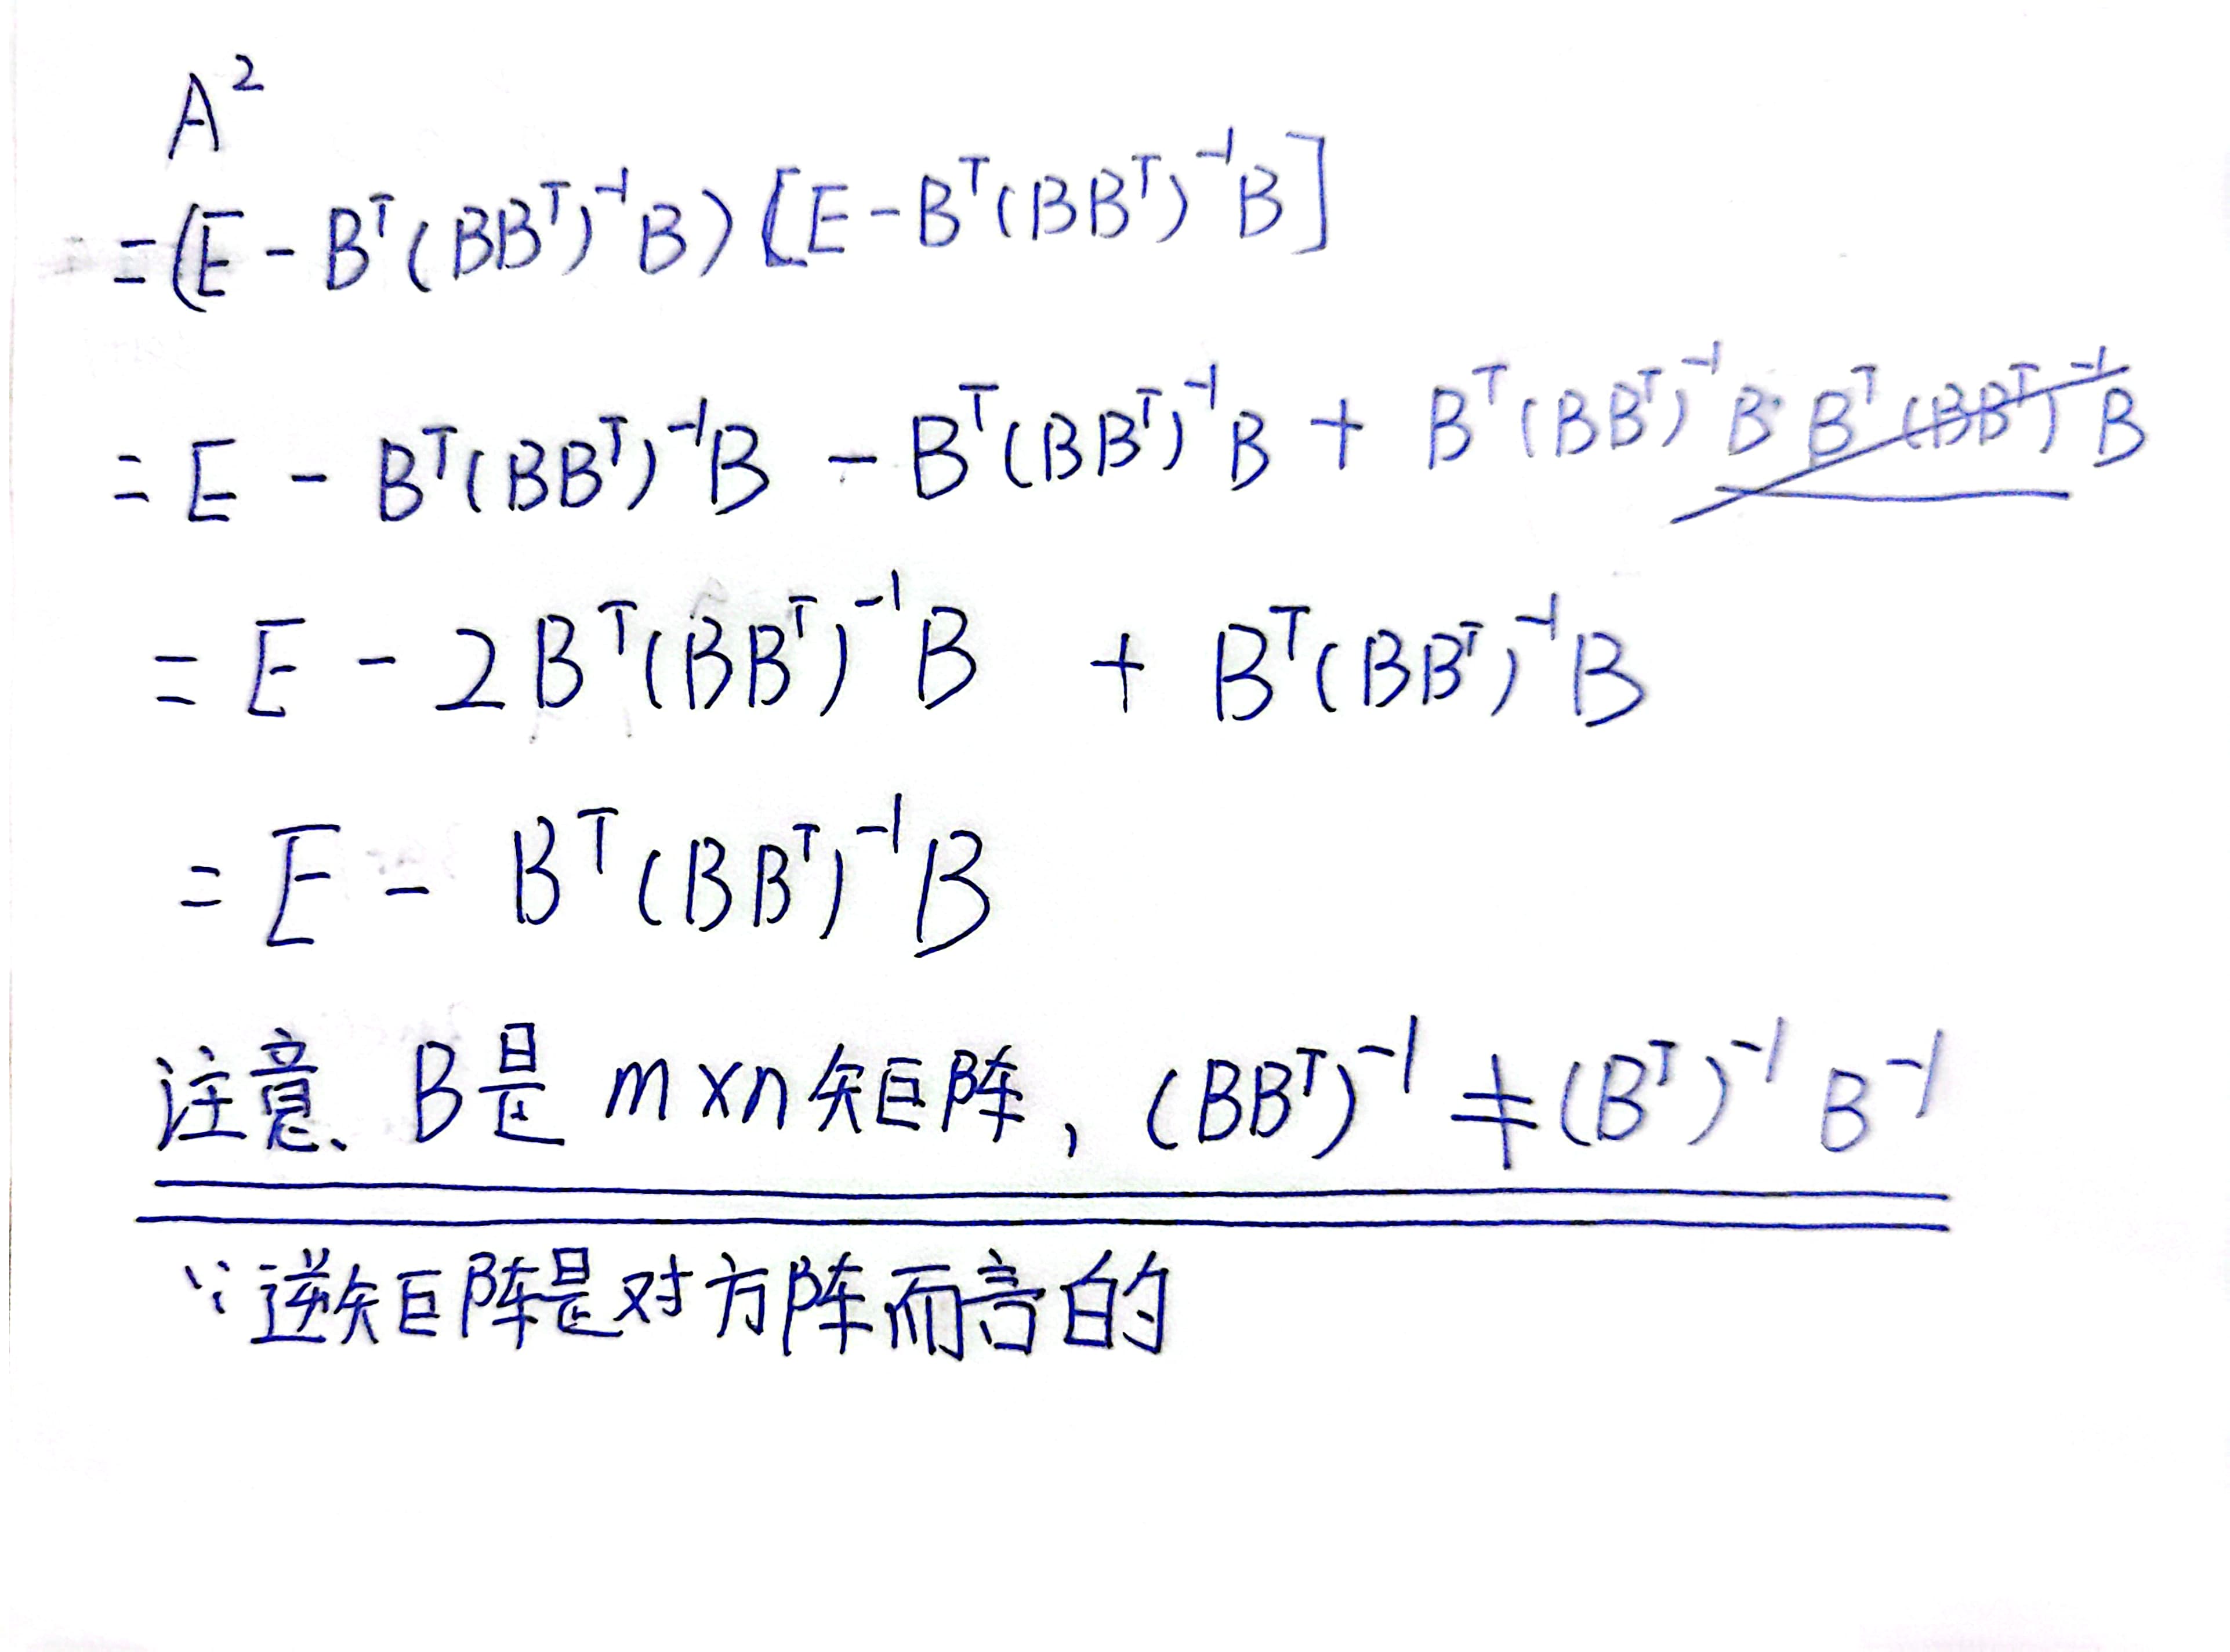 A²
=(E - Bᵀ(BBᵀ)⁻¹B)[E - Bᵀ(BBᵀ)⁻¹B]
= E - Bᵀ(BBᵀ)⁻¹B - Bᵀ(BBᵀ)⁻¹B + Bᵀ(BBᵀ)⁻¹B·Bᵀ(BBᵀ)⁻¹B
= E - 2Bᵀ(BBᵀ)⁻¹B + Bᵀ(BBᵀ)⁻¹B
= E - Bᵀ(BBᵀ)⁻¹B
注意、B是 m×n矩阵, (BBᵀ)⁻¹ ≠ (Bᵀ)⁻¹ B⁻¹
∵逆矩阵是对方阵而言的